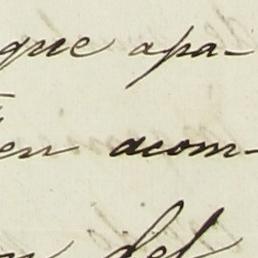 que apa-
en acom-
del